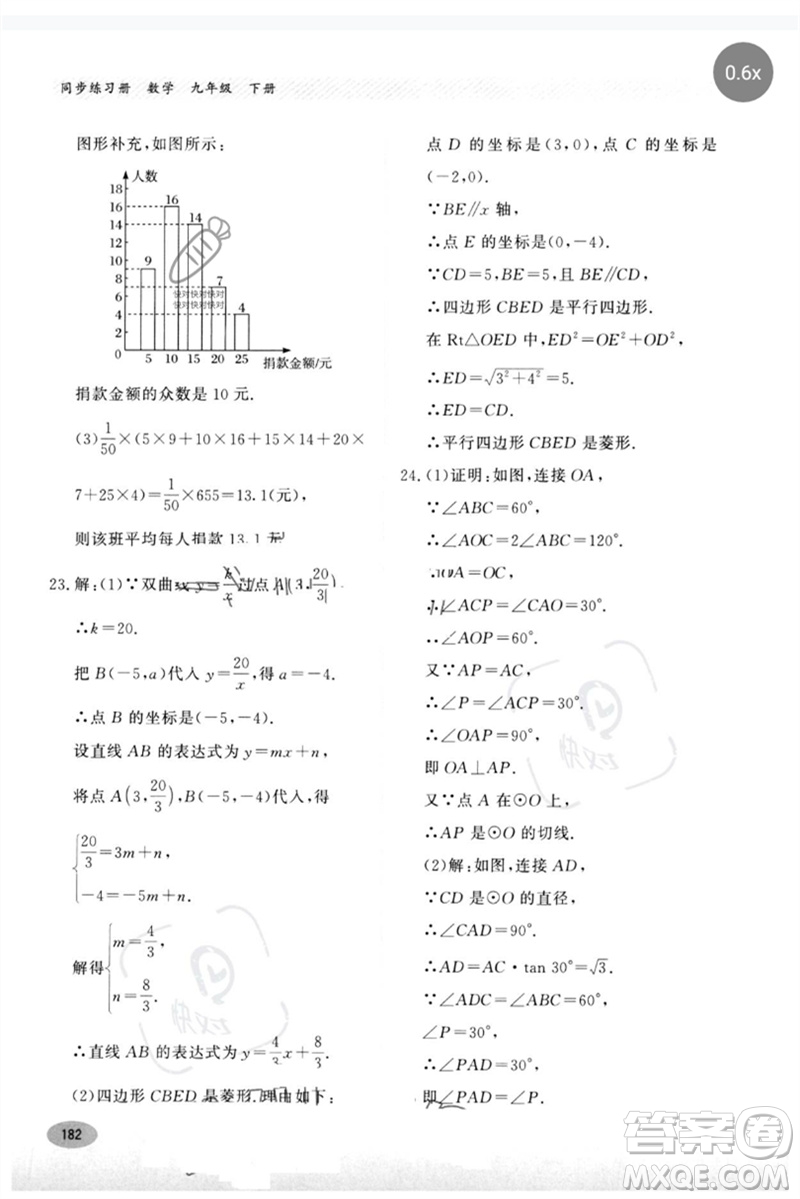 0.6x
同步练习册 数学 九年级 下册
图形补充,如图所示:
人数
18
16
14
12
10
8
6
4
2
0
9
16
14
7
4
5 10 15 20 25
捐款金额/元
快对快对快对
快对快对快对
捐款金额的众数是 10 元.
(3) 1/50 ×(5×9+10×16+15×14+20×
7+25×4)= 1/50 ×655=13.1(元),
则该班平均每人捐款 13.1 元.
23.解:(1)∵双曲线 y= k/x 过点 A(3, 20/3)
∴k=20.
把 B(-5,a)代入 y= 20/x ,得 a=-4.
∴点 B 的坐标是(-5,-4).
设直线 AB 的表达式为 y=mx+n,
将点 A(3, 20/3),B(-5,-4)代入,得
{ 20/3 =3m+n,
-4=-5m+n.
解得{ m= 4/3 ,
n= 8/3 .
∴直线 AB 的表达式为 y= 4/3 x+ 8/3 .
(2)四边形 CBED 是菱形.理由如下:
182
点 D 的坐标是(3,0),点 C 的坐标是
(-2,0).
∵BE∥x 轴,
∴点 E 的坐标是(0,-4).
∵CD=5,BE=5,且 BE∥CD.
∴四边形 CBED 是平行四边形.
在 Rt△OED 中,ED²=OE²+OD²,
∴ED=√(3²+4²)=5.
∴ED=CD.
∴平行四边形 CBED 是菱形.
24.(1)证明:如图,连接 OA,
∵∠ABC=60°,
∴∠AOC=2∠ABC=120°.
∵OA=OC,
∴∠ACP=∠CAO=30°.
∴∠AOP=60°.
又∵AP=AC,
∴∠P=∠ACP=30°.
∴∠OAP=90°.
即 OA⊥AP.
又∵点 A 在⊙O 上,
∴AP 是⊙O 的切线.
(2)解:如图,连接 AD,
∵CD 是⊙O 的直径,
∴∠CAD=90°.
∴AD=AC·tan 30°=√3.
∵∠ADC=∠ABC=60°,
∠P=30°,
∴∠PAD=30°.
即∠PAD=∠P.
快对
快对
答案圈
MXQE.COM